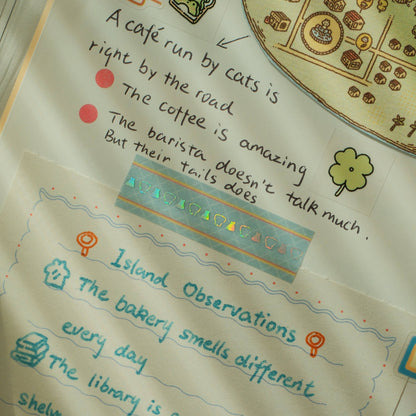 A café run by cats is
right by the road
The coffee is amazing
The barista doesn't talk much.
But their tails does
Island Observations
The bakery smells different
every day
The library is